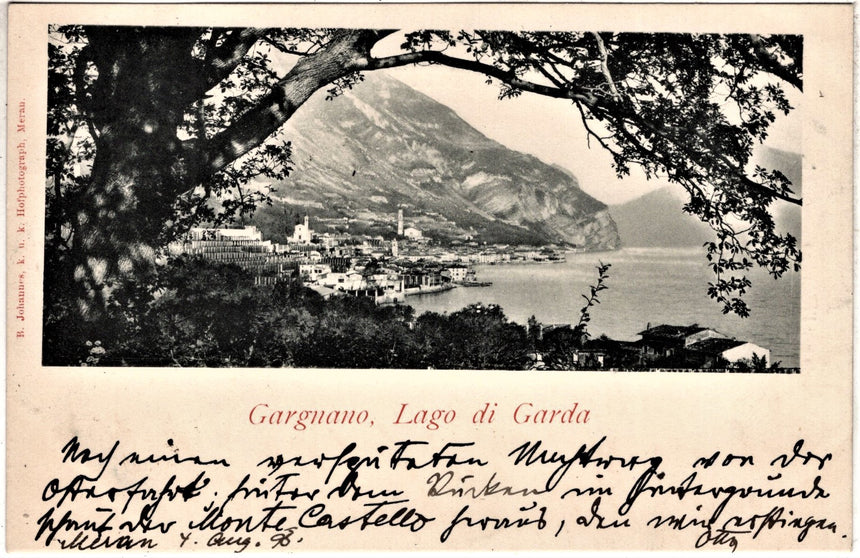 B. Johannes, k. u. k. Hofphotograph, Meran.
Gargnano, Lago di Garda
Noch einen verspäteten von der
Osterfahrt. Hinter dem Rücken im Hintergrunde
schaut der Monte Castello heraus, den wir erstiegen.
Meran 4. Aug. 98. Otto